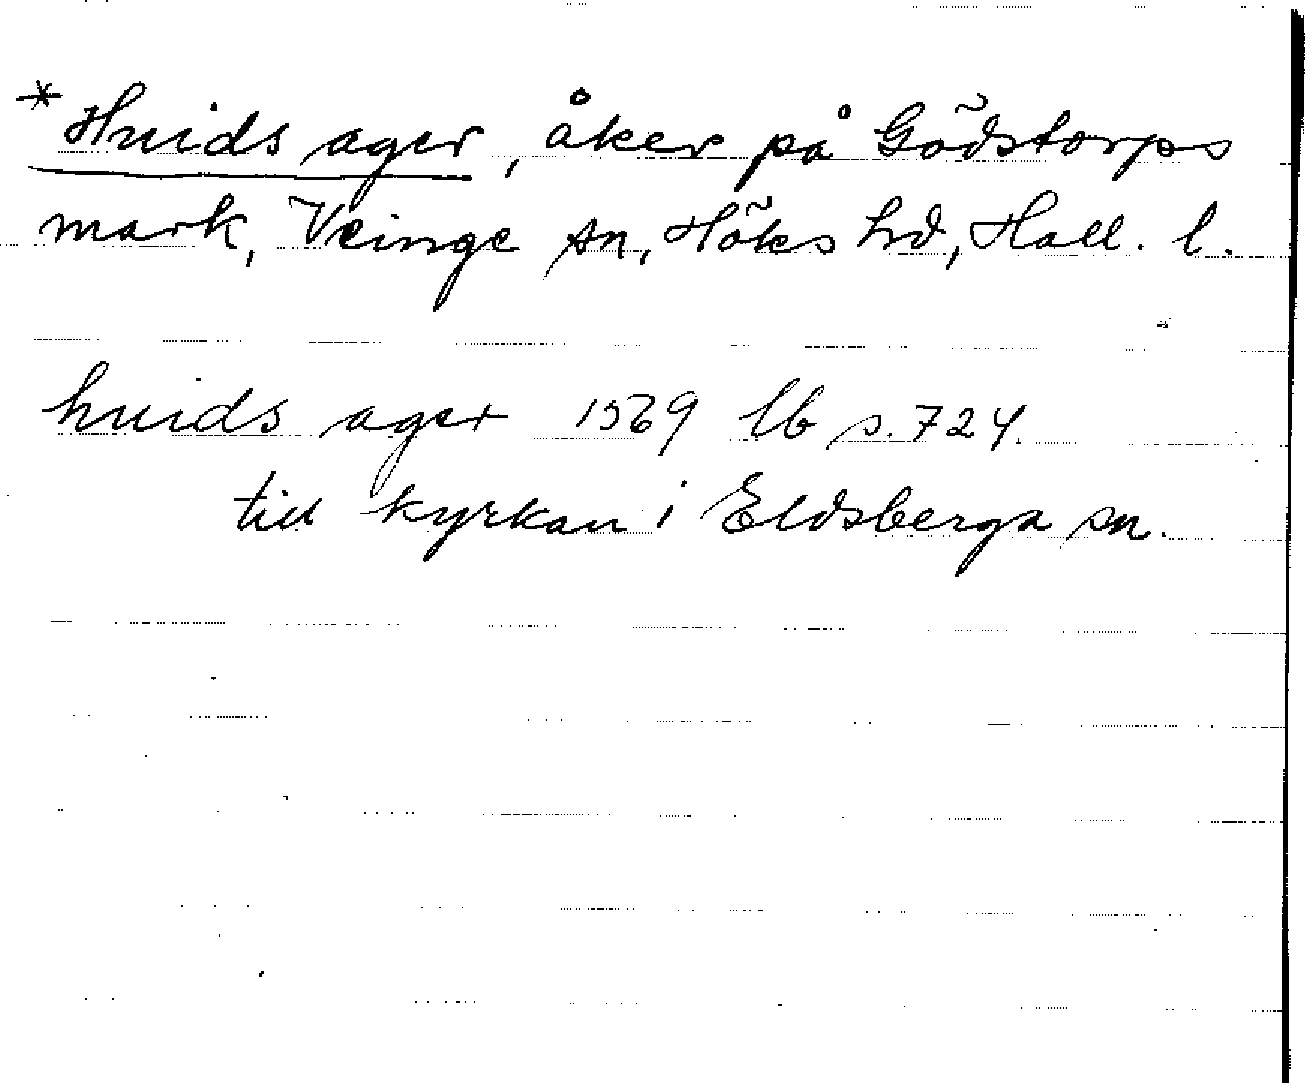 *Huids ager, åker på Gödstorps
mark, Veinge sn, Höks hd, Hall. l.
huids ager 1569 lb s. 724.
till kyrkan i Eldsberga sn.